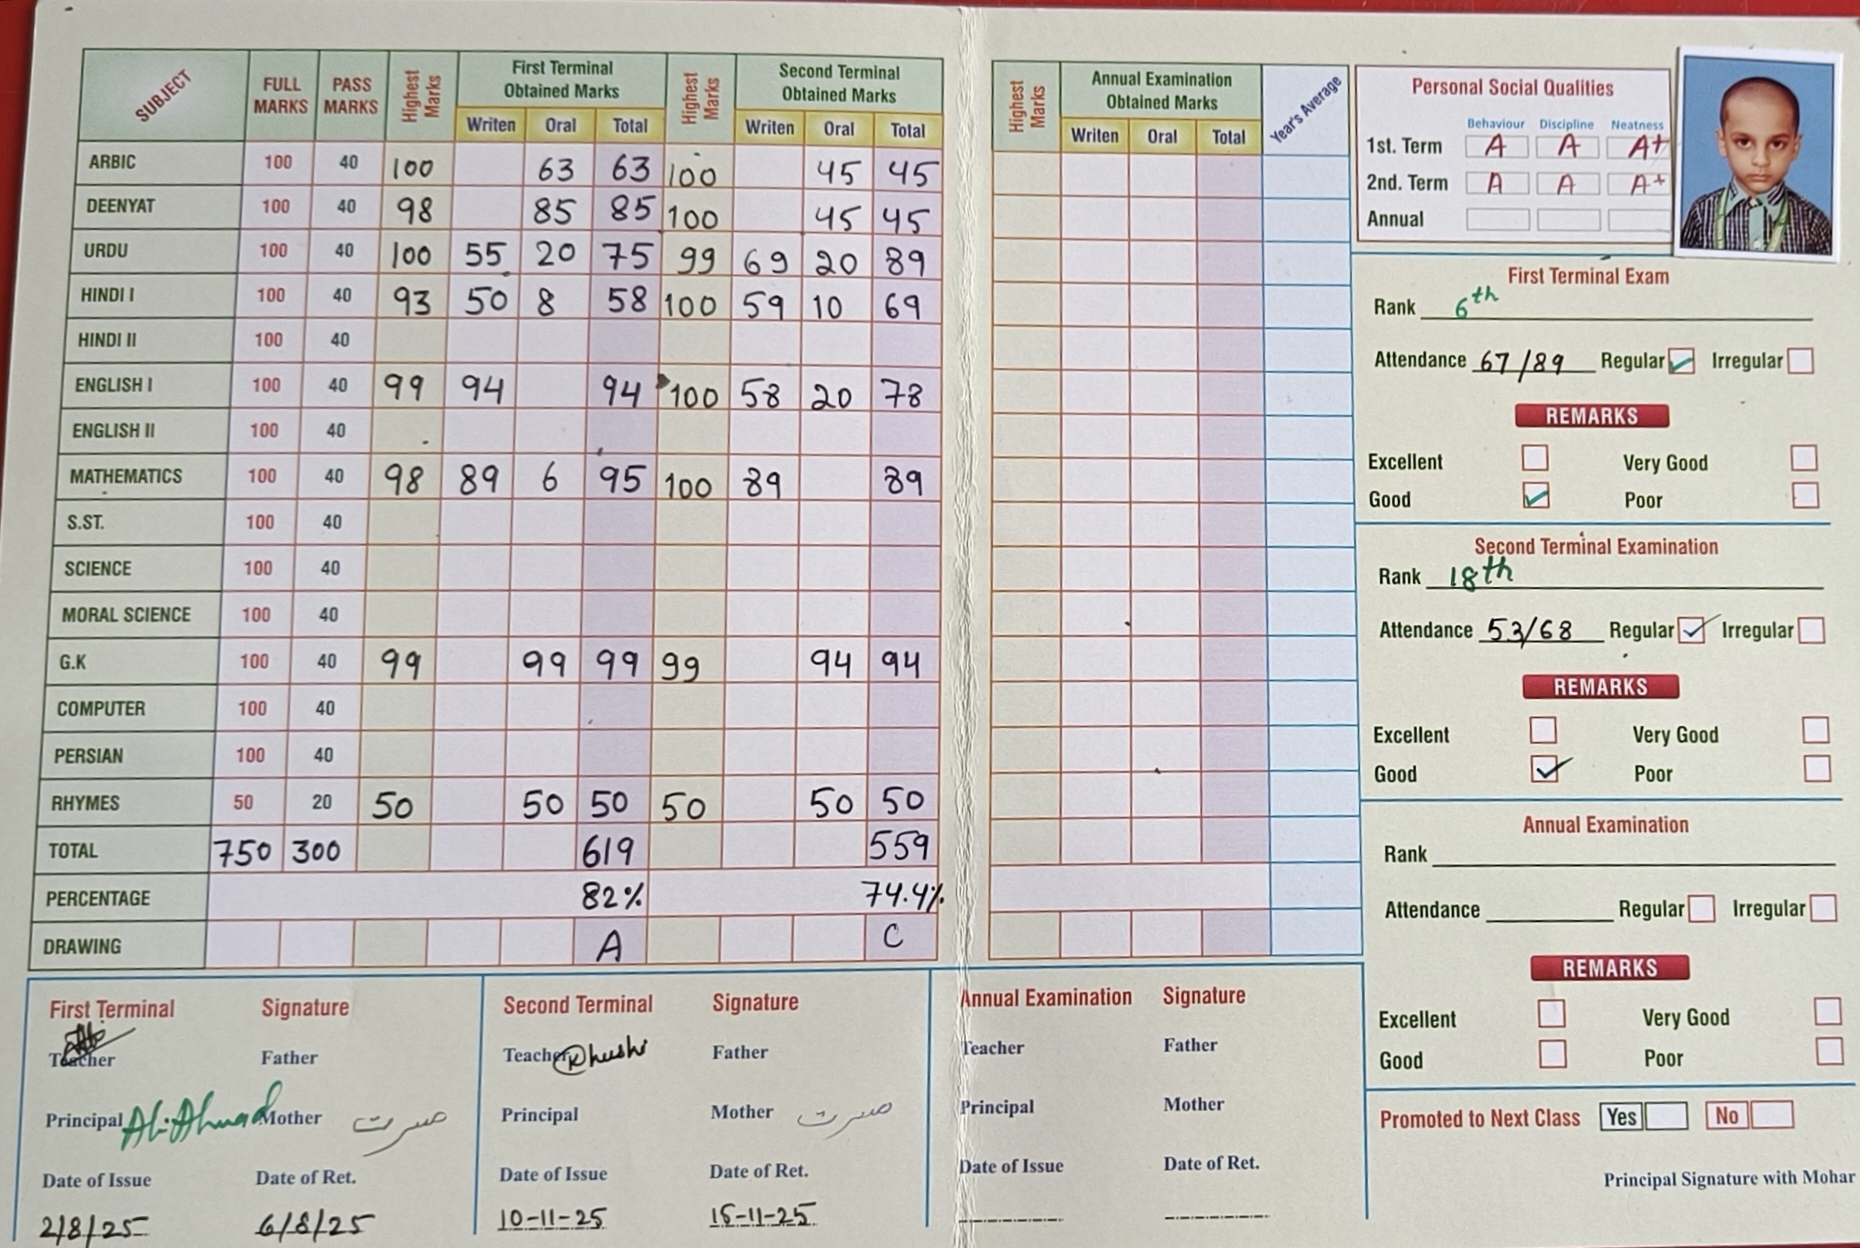 SUBJECT FULL MARKS PASS MARKS Highest Marks First Terminal Obtained Marks Highest Marks Second Terminal Obtained Marks
Writen Oral Total Writen Oral Total
ARBIC 100 40 100 63 63 100 45 45
DEENYAT 100 40 98 85 85 100 45 45
URDU 100 40 100 55 20 75 99 69 20 89
HINDI I 100 40 93 50 8 58 100 59 10 69
HINDI II 100 40
ENGLISH I 100 40 99 94 94 100 58 20 78
ENGLISH II 100 40
MATHEMATICS 100 40 98 89 6 95 100 89 89
S.ST. 100 40
SCIENCE 100 40
MORAL SCIENCE 100 40
G.K 100 40 99 99 99 99 94 94
COMPUTER 100 40
PERSIAN 100 40
RHYMES 50 20 50 50 50 50 50 50
TOTAL 750 300 619 559
PERCENTAGE 82% 74.4%
DRAWING A C
First Terminal Signature
Teacher Father
Principal Ali Ahmad Mother مسرت
Date of Issue Date of Ret.
2/8/25 6/8/25
Second Terminal Signature
Teacher Khushi Father
Principal Mother مسرت
Date of Issue Date of Ret.
10-11-25 15-11-25
Highest Marks Annual Examination Obtained Marks Year's Average
Writen Oral Total
Annual Examination Signature
Teacher Father
Principal Mother
Date of Issue Date of Ret.
Personal Social Qualities
Behaviour Discipline Neatness
1st. Term A A A+
2nd. Term A A A+
Annual
First Terminal Exam
Rank 6th
Attendance 67/89 Regular Irregular
REMARKS
Excellent Very Good
Good Poor
Second Terminal Examination
Rank 18th
Attendance 53/68 Regular Irregular
REMARKS
Excellent Very Good
Good Poor
Annual Examination
Rank
Attendance Regular Irregular
REMARKS
Excellent Very Good
Good Poor
Promoted to Next Class Yes No
Principal Signature with Mohar